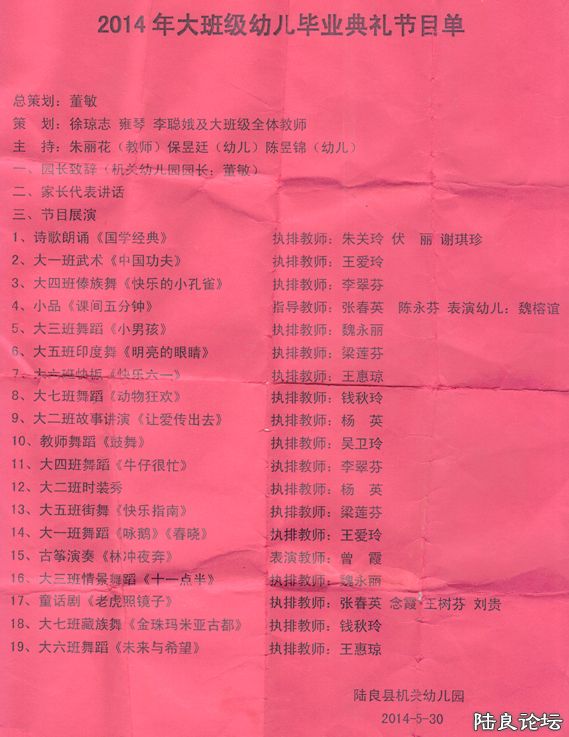 2014 年大班级幼儿毕业典礼节目单
总策划：董敏
策 划：徐琼志 雍琴 李聪娥及大班级全体教师
主 持：朱丽花（教师）保昱廷（幼儿）陈昱锦（幼儿）
一、园长致辞（机关幼儿园园长：董敏）
二、家长代表讲话
三、节目展演
1、诗歌朗诵《国学经典》 执排教师：朱关玲 伏 丽 谢琪珍
2、大一班武术《中国功夫》 执排教师：王爱玲
3、大四班傣族舞《快乐的小孔雀》 执排教师：李翠芬
4、小品《课间五分钟》 指导教师：张春英 陈永芬 表演幼儿：魏榕谊
5、大三班舞蹈《小男孩》 执排教师：魏永丽
6、大五班印度舞《明亮的眼睛》 执排教师：梁莲芬
7、大六班快板《快乐六一》 执排教师：王惠琼
8、大七班舞蹈《动物狂欢》 执排教师：钱秋玲
9、大二班故事讲演《让爱传出去》 执排教师：杨 英
10、教师舞蹈《鼓舞》 执排教师：吴卫玲
11、大四班舞蹈《牛仔很忙》 执排教师：李翠芬
12、大二班时装秀 执排教师：杨 英
13、大五班街舞《快乐指南》 执排教师：梁莲芬
14、大一班舞蹈《咏鹅》《春晓》 执排教师：王爱玲
15、古筝演奏《林冲夜奔》 表演教师：曾 霞
16、大三班情景舞蹈《十一点半》 执排教师：魏永丽
17、童话剧《老虎照镜子》 执排教师：张春英 念霞 王树芬 刘贵
18、大七班藏族舞《金珠玛米亚古都》 执排教师：钱秋玲
19、大六班舞蹈《未来与希望》 执排教师：王惠琼
陆良县机关幼儿园
2014-5-30
陆良论坛